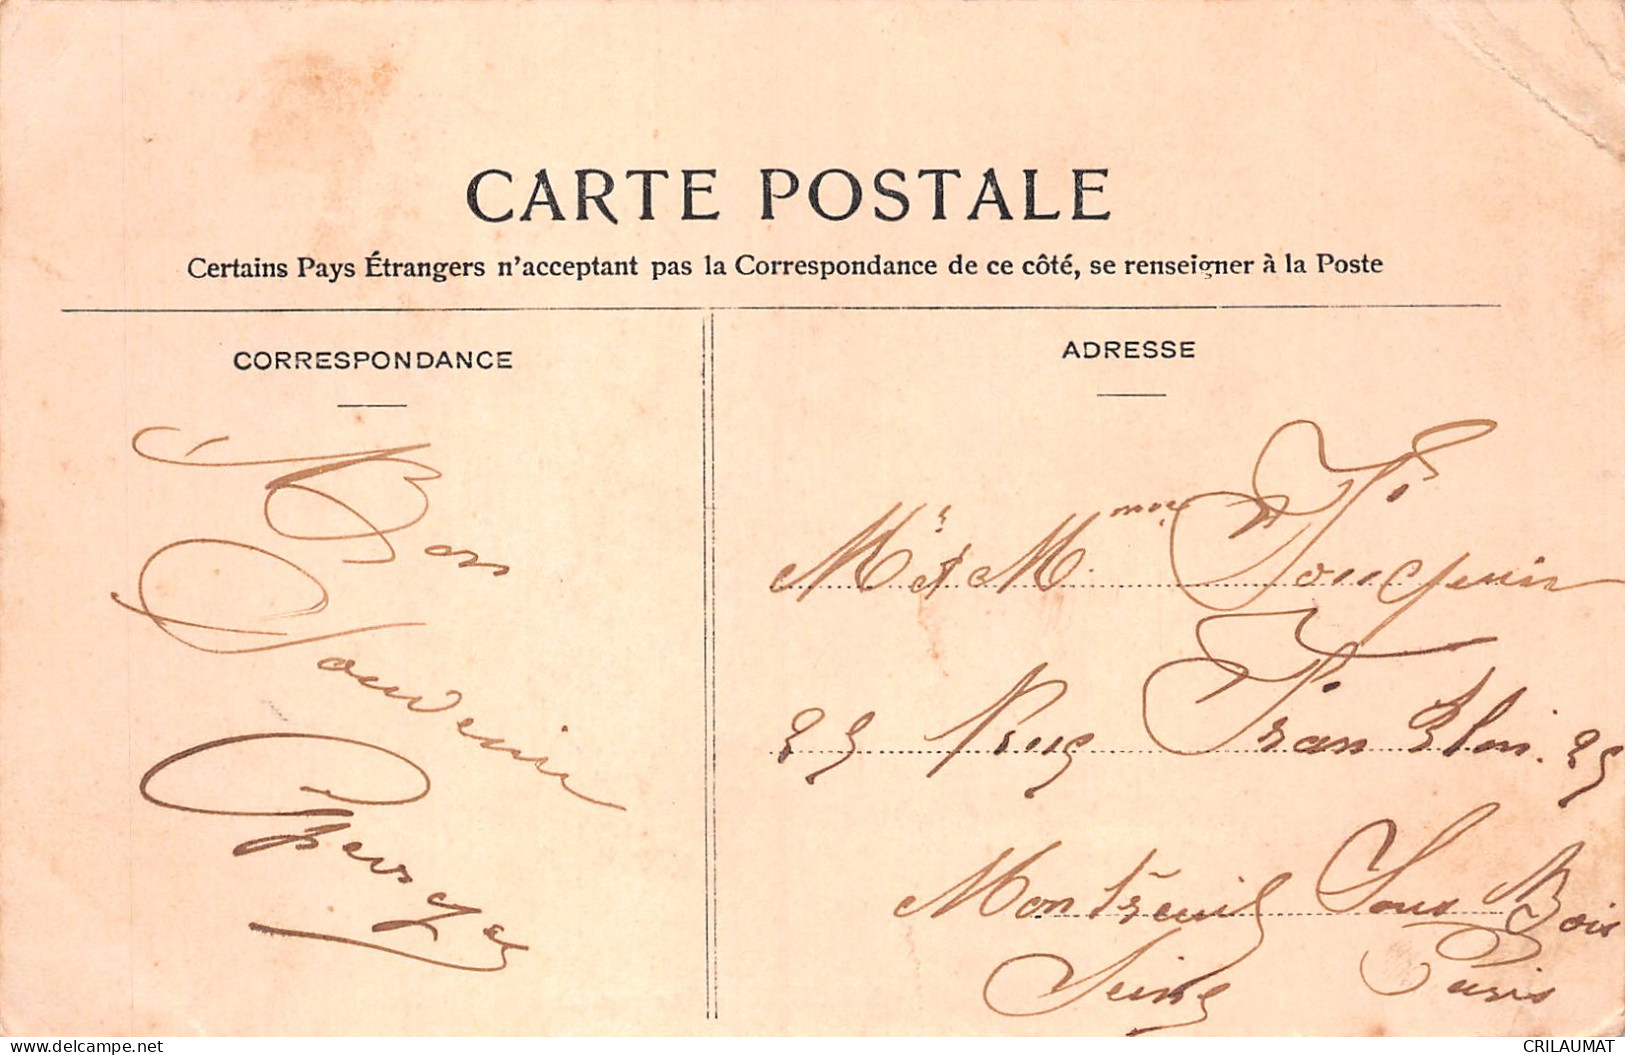 CARTE POSTALE
Certains Pays Étrangers n'acceptant pas la Correspondance de ce côté, se renseigner à la Poste
CORRESPONDANCE
Bon
Souvenir
ADRESSE
Mr et Mme
25 Rue Franklin. 25
Montreuil Sous Bois
Seine Paris
delcampe.net
CRILAUMAT